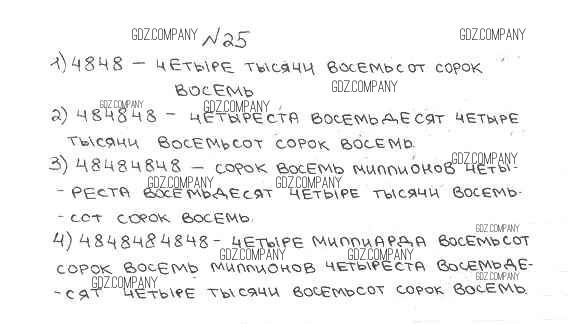 GDZ.COMPANY №25 GDZ.COMPANY
1) 4848 – ЧЕТЫРЕ ТЫСЯЧИ ВОСЕМЬСОТ СОРОК
ВОСЕМЬ GDZ.COMPANY
GDZ.COMPANY GDZ.COMPANY
2) 484848 – ЧЕТЫРЕСТА ВОСЕМЬДЕСЯТ ЧЕТЫРЕ
ТЫСЯЧИ ВОСЕМЬСОТ СОРОК ВОСЕМЬ.
GDZ.COMPANY
3) 48484848 – СОРОК ВОСЕМЬ МИЛЛИОНОВ ЧЕТЫ-
GDZ.COMPANY GDZ.COMPANY
-РЕСТА ВОСЕМЬДЕСЯТ ЧЕТЫРЕ ТЫСЯЧИ ВОСЕМЬ-
-СОТ СОРОК ВОСЕМЬ.
GDZ.COMPANY
4) 4848484848 – ЧЕТЫРЕ МИЛЛИАРДА ВОСЕМЬСОТ
GDZ.COMPANY GDZ.COMPANY
СОРОК ВОСЕМЬ МИЛЛИОНОВ ЧЕТЫРЕСТА ВОСЕМЬДЕ-
GDZ.COMPANY GDZ.COMPANY
-СЯТ ЧЕТЫРЕ ТЫСЯЧИ ВОСЕМЬСОТ СОРОК ВОСЕМЬ.